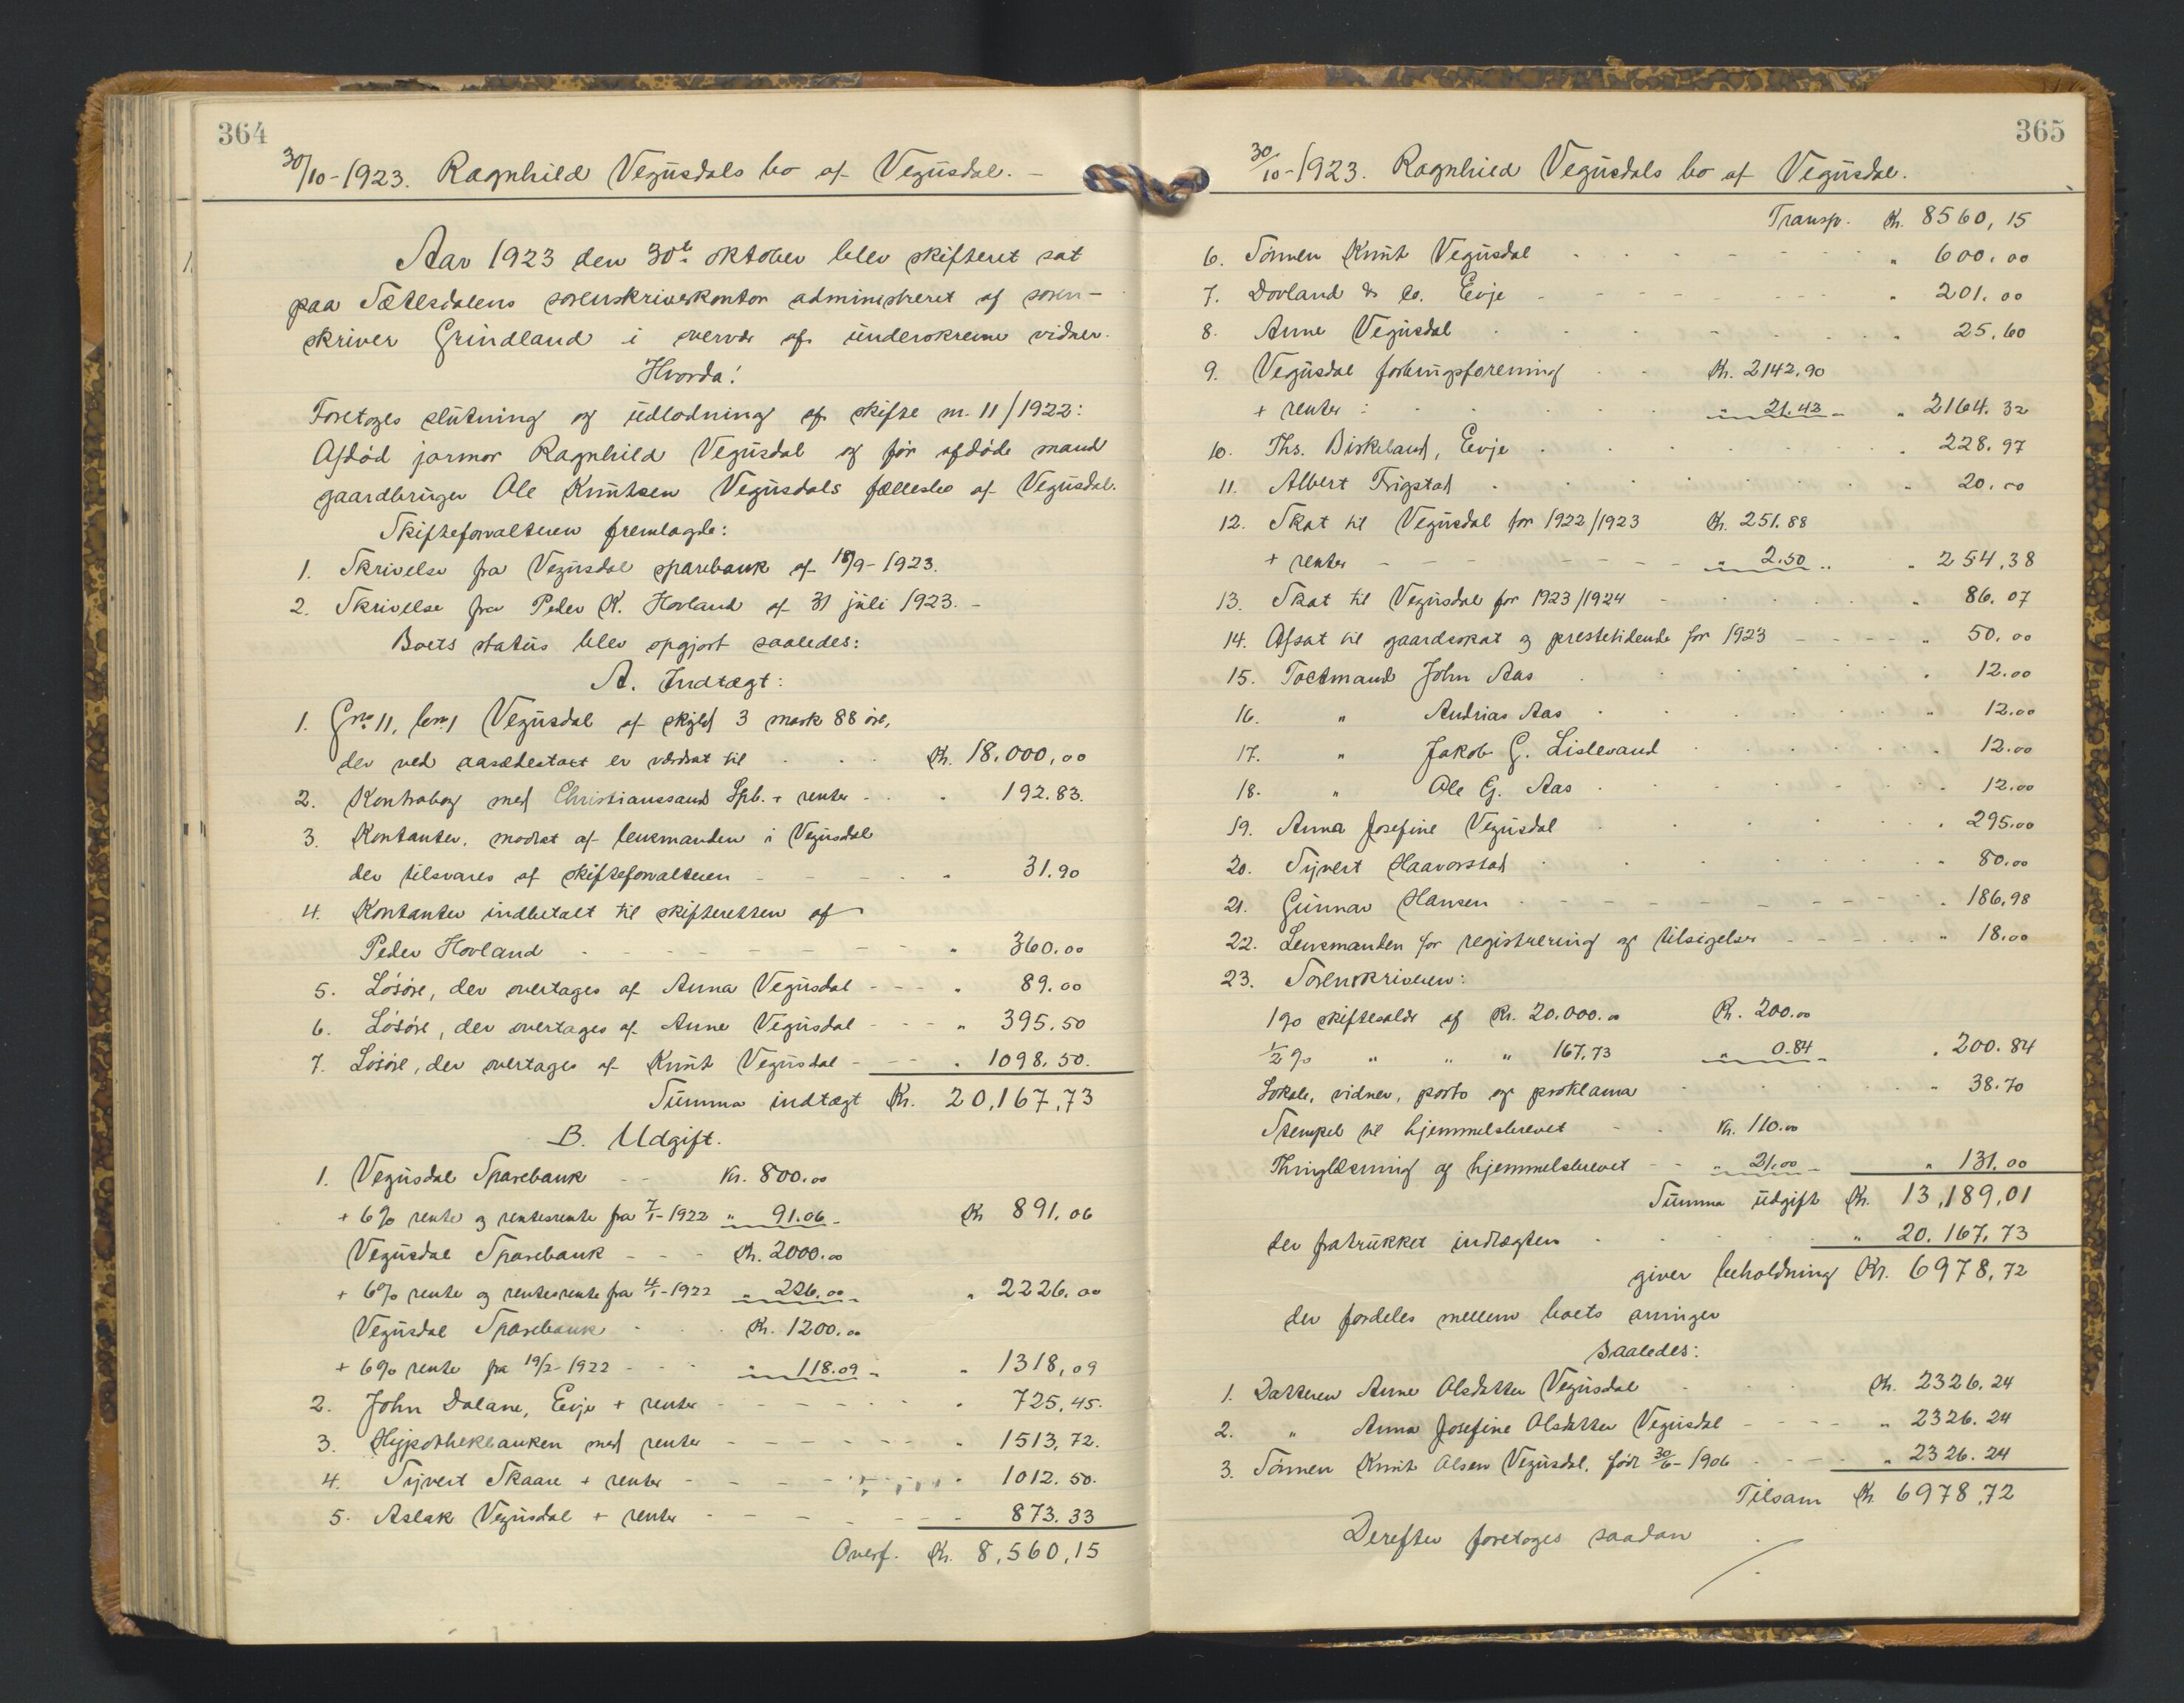 364
30/10-1923. Ragnhild Vegusdals bo af Vegusdal. -
Aar 1923 den 30te oktober blev skifteret sat
paa Sætesdalens sorenskriverkontor administreret af soren-
skriver Grindland i overvær af underskrevne vidner.
Hvorda!
Foretoges slutning og udlodning af skifte nr. 11/1922:
Afdød jormor Ragnhild Vegusdal og før afdøde mand
gaardbruger Ole Knutsen Vegusdals fællesbo af Vegusdal.
Skifteforvalteren fremlagde:
1. Skrivelse fra Vegusdal sparebank af 18/9-1923.
2. Skrivelse fra Peder K. Hovland af 31 juli 1923. -
Boets status blev opgjort saaledes:
A. Indtægt:
1. Gno 11, bno 1 Vegusdal af skyld 3 mark 88 øre,
der ved aasædestaxt er værdsat til Kr. 18.000,00
2. Kontrabog med Christianssand Spb. + renter - " 192.83.
3. Kontanter, modtat af lensmanden i Vegusdal
der tilsvares af skifteforvalteren - " 31.90
4. Kontanter indbetalt til skifteretten af
Peder Hovland - " 360.00
5. Løsøre, der overtages af Anna Vegusdal - - - " 89.00
6. Løsøre, der overtages af Anne Vegusdal - - - " 395.50
7. Løsøre, der overtages af Knut Vegusdal - - - " 1098.50.
Summa indtægt Kr. 20,167,73
B. Udgift.
1. Vegusdal Sparebank - - Kr. 800.00
+ 6% rente og rentesrente fra 7/1-1922 " 91.06 - Kr 891,06
Vegusdal Sparebank - - - Kr. 2000.00
+ 6% rente og rentesrente fra 4/1-1922 " 226.00 - " 2226.00
Vegusdal Sparebank - Kr. 1200.00
+ 6% rente fra 19/2-1922 - - - " 118.09 - " 1318,09
2. John Dalane, Evje + renter - - - " 725,45.
3. Hypothekbanken med renter - - - " 1513,72.
4. Syvert Skaare + renter - - - " 1012.50.
5. Aslak Vegusdal + renter - - - 873.33
Overf. Kr. 8,560,15
365
30/10-1923. Ragnhild Vegusdals bo af Vegusdal.
Transp. Kr. 8560,15
6. Sønnen Knut Vegusdal " 600.00
7. Dovland & Co. Evje " 201.00
8. Anne Vegusdal " 25,60
9. Vegusdal forbrugsforening Kr. 2142.90
+ renter : " 21.42 - " 2164.32
10. Ths. Birkeland, Evje " 228.97
11. Albert Frigstad " 20.00
12. Skat til Vegusdal for 1922/1923 Kr. 251.88
+ renter - - - " 2.50 " 254,38
13. Skat til Vegusdal for 1923/1924 - " 86.07
14. Afsat til gaardsskat og prestetidende for 1923 - - - " 50.00
15. Taxtmand John Aas " 12.00
16. " Andrias Aas 12.00
17. " Jakob G. Lislevand 12.00
18. " Ole G. Aas " 12.00
19. Anna Josefine Vegusdal " 295.00
20. Syvert Haavorstad " 80.00
21. Gunnar Hansen - - - " 186,98
22. Lensmanden for registrering og tilsigelser - - - " 18.00
23. Sorenskriveren:
1% skiftesalær af Kr. 20.000.00 Kr. 200.00
1/2% " " " 167,73 " 0.84 - " 200.84
Lokale, vidner, porto og proklama " 38.70
Stempel til hjemmelsbrevet - Kr. 110.00
Thinglæsning af hjemmelsbrevet - - " 21.00 - " 131.00
Summa udgift Kr. 13,189,01
der fratrukket indtægten " 20.167,73
giver beholdning Kr. 6978,72
der fordeles mellem boets arvinger
saaledes:
1. Datteren Anne Olsdatter Vegusdal Kr. 2326.24
2. " Anna Josefine Olsdatter Vegusdal - - - " 2326.24
3. Sønnen Knut Olsen Vegusdal, født 30/6-1906 - - " 2326.24
Tilsam Kr 6978,72
Derefter foretoges saadan